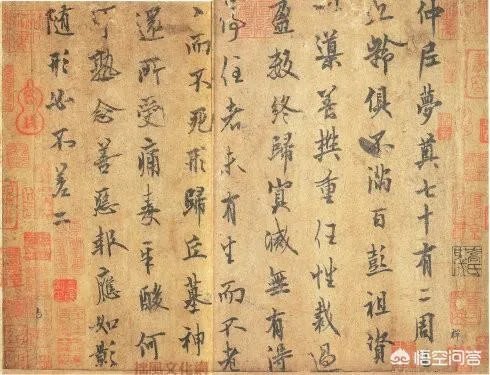 仲尼夢奠七十有二周
齡俱不滿百彭祖資
導養樊重任性裁過
盈數終歸冥滅無有得
停住者未有生而不老
而不死形歸丘墓神
還所受痛毒辛酸何
可熟念善惡報應如影
隨形必不差二
悟空问答